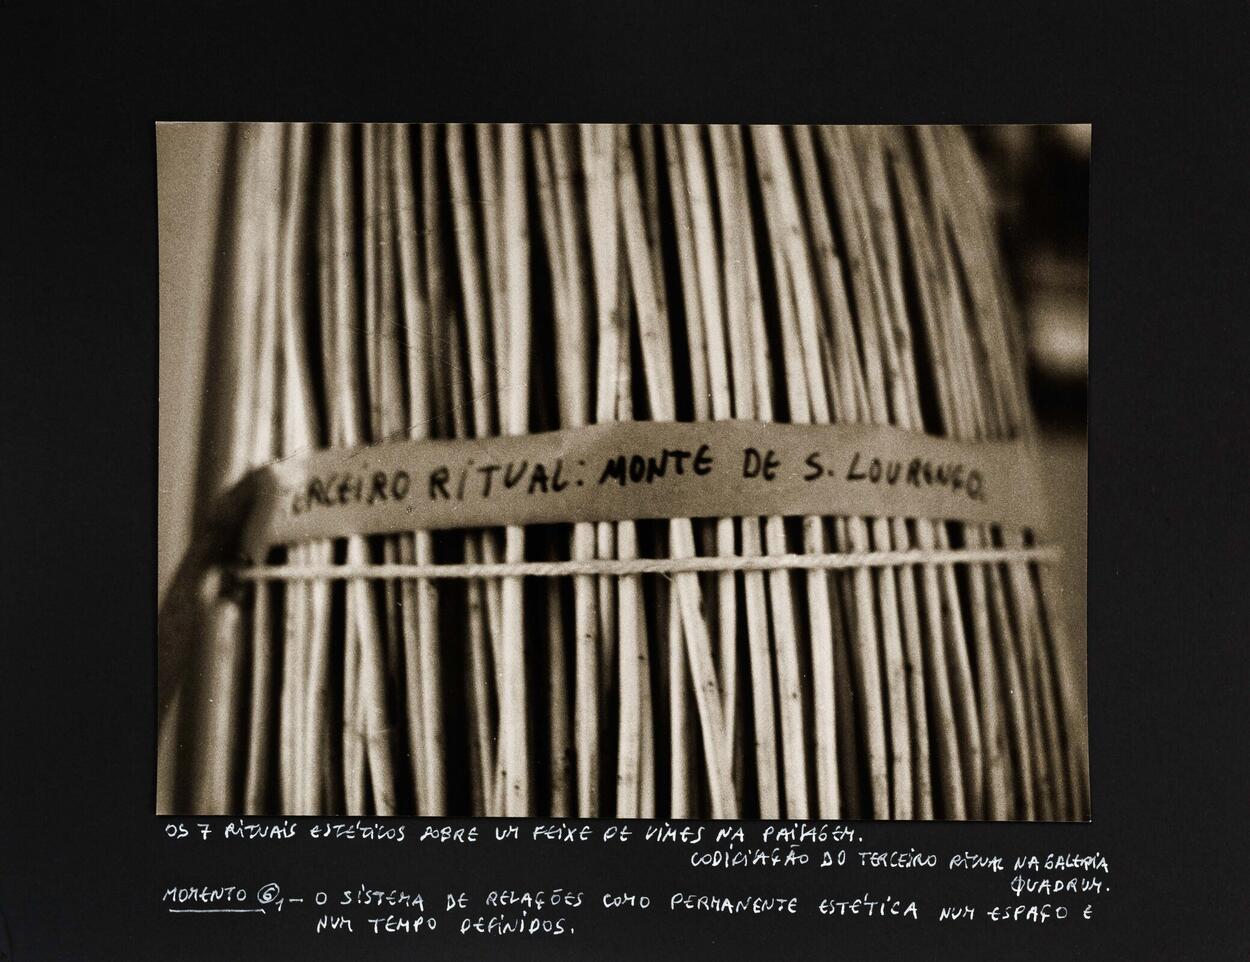 TERCEIRO RITUAL: MONTE DE S. LOURENÇO.
OS 7 RITUAIS ESTÉTICOS SOBRE UM FEIXE DE VIMES NA PAISAGEM.
CODICIAÇÃO DO TERCEIRO RITUAL NA GALERIA
QUADRUM.
MOMENTO 6 1 — O SISTEMA DE RELAÇÕES COMO PERMANENTE ESTÉTICA NUM ESPAÇO E
NUM TEMPO DEFINIDOS.